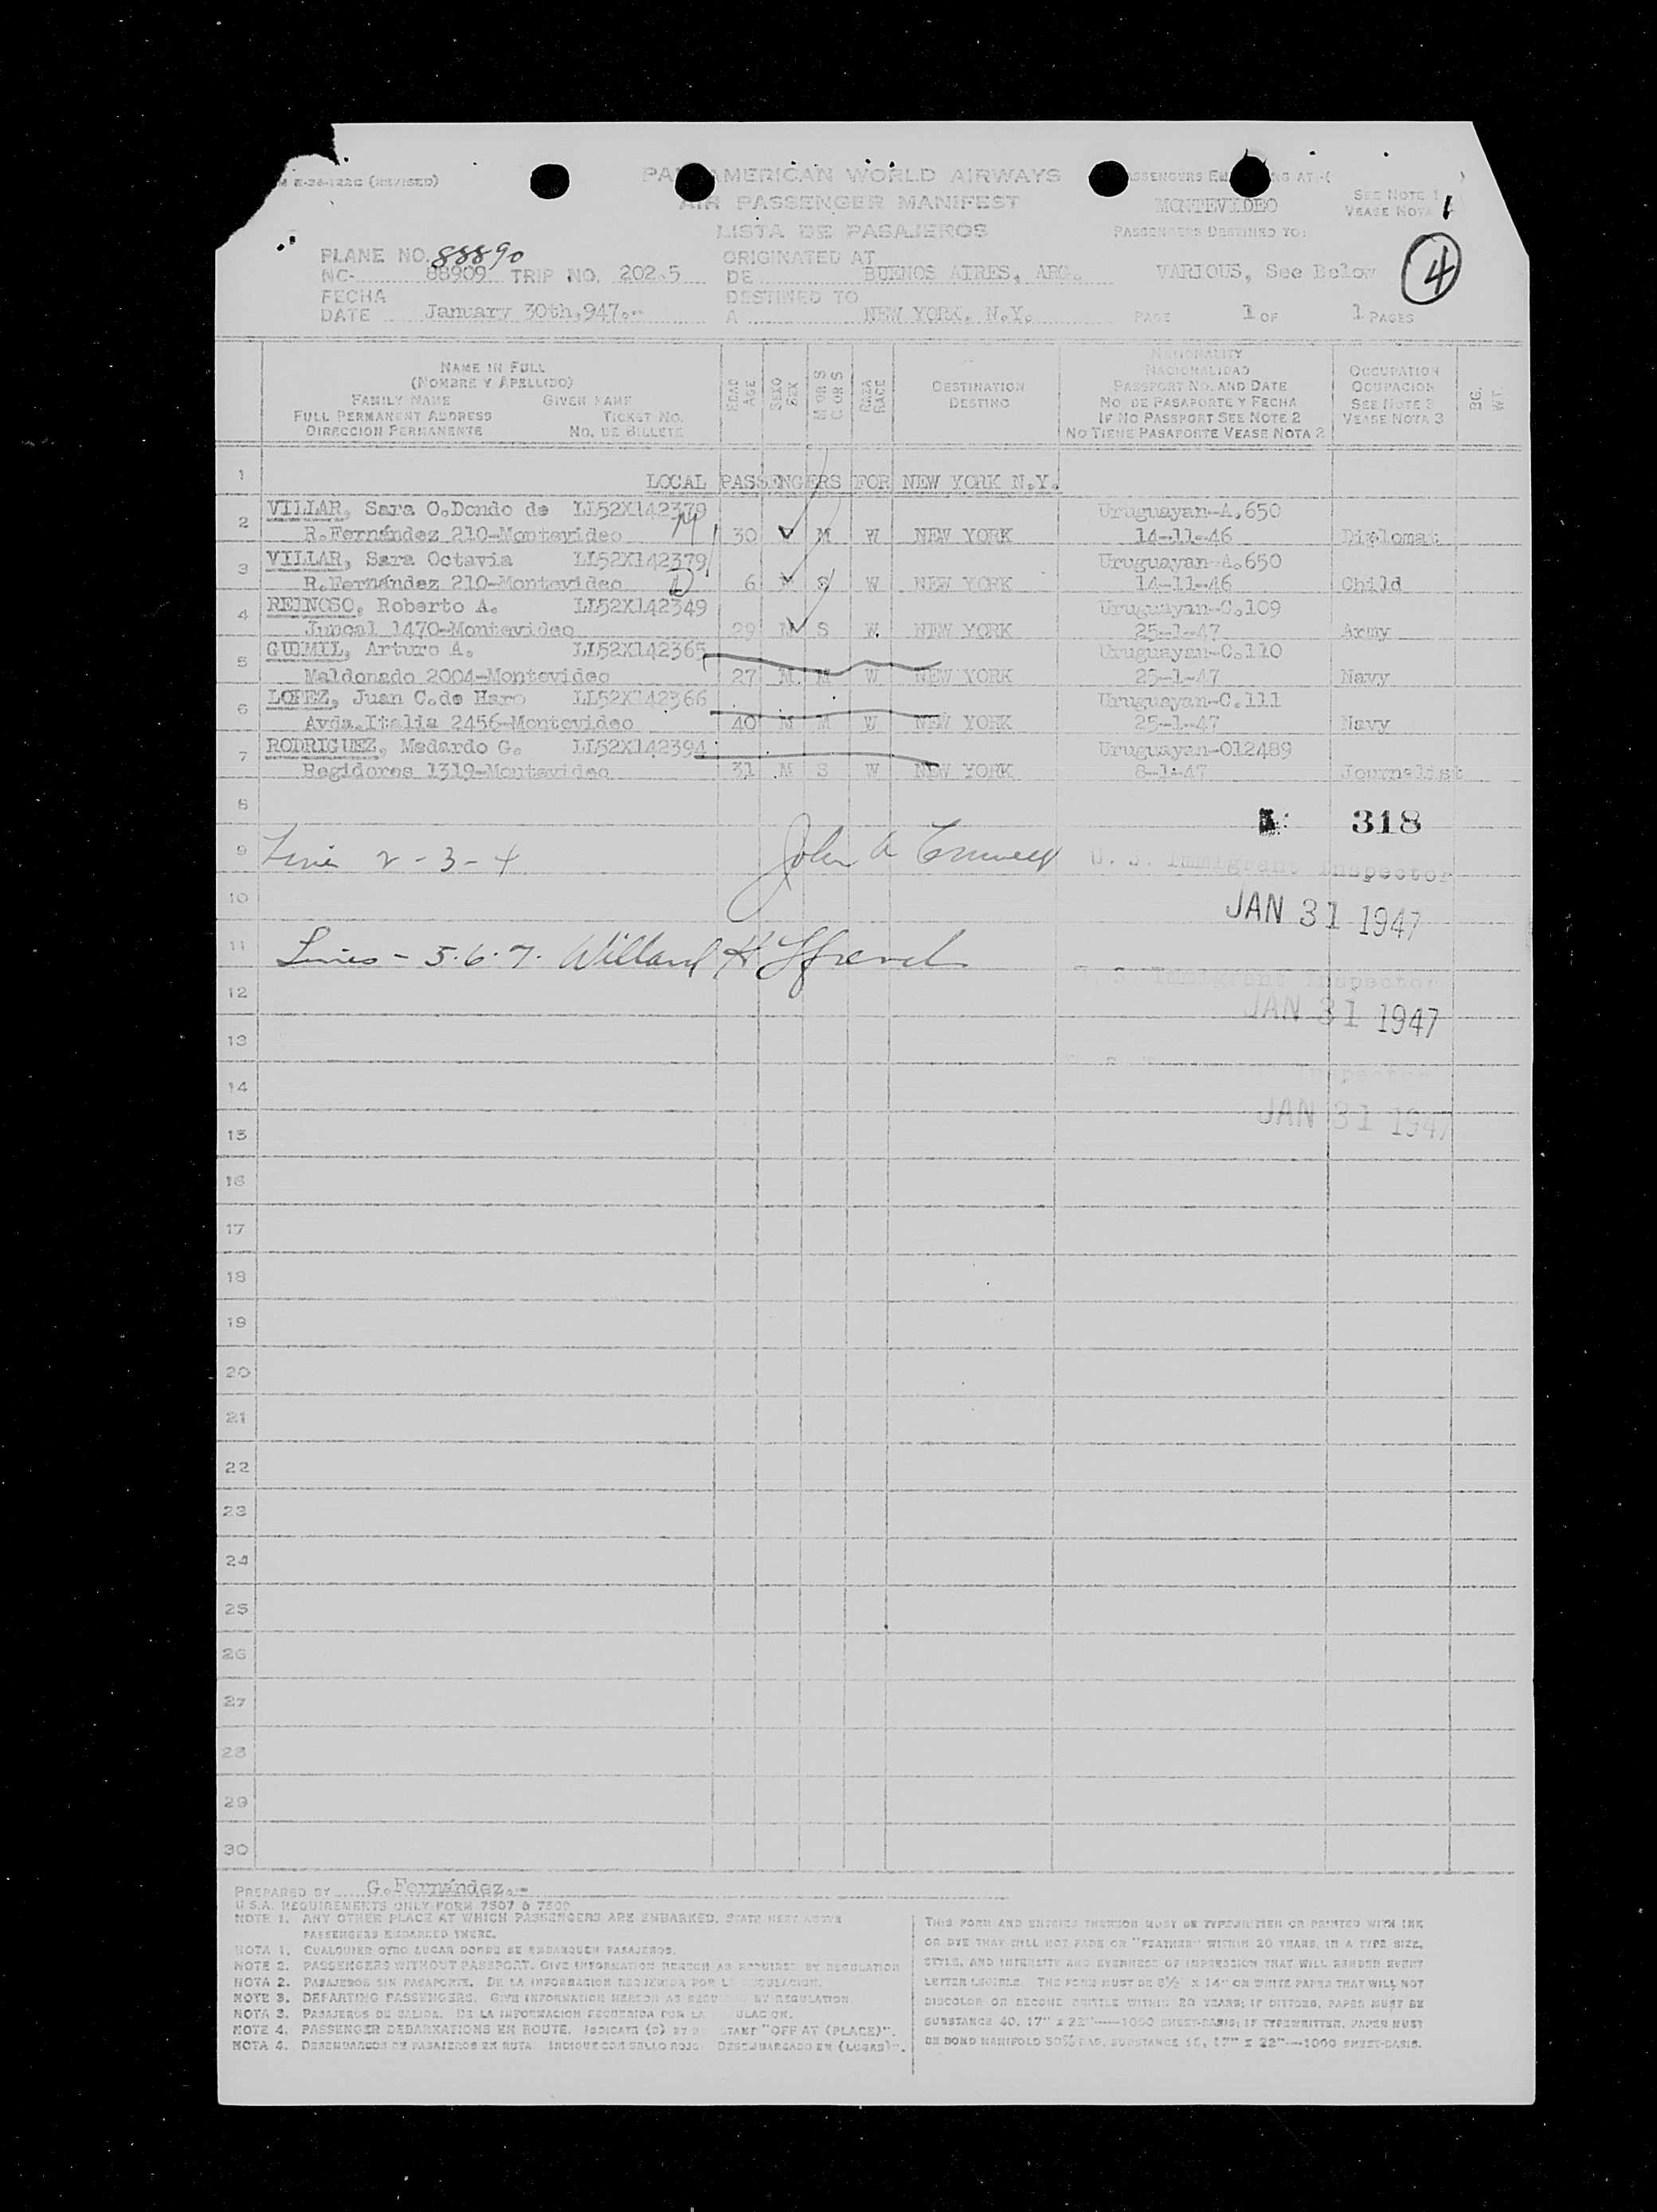 E-24-122C (REVISED)
PAN AMERICAN WORLD AIRWAYS
AIR PASSENGER MANIFEST
LISTA DE PASAJEROS
AT (
)
MONTEVIDEO
SEE NOTE 1
VEASE NOTA 1
PASSENGERS DESTINED TO:
VARIOUS, See Below
4
PLANE NO. 88890
NC- 88909 TRIP NO. 202.5
ORIGINATED AT
DE BUENOS AIRES, ARG.
FECHA
DATE January 30th,947.--
DESTINED TO
A NEW YORK, N.Y.
PAGE 1 OF 1 PAGES
NAME IN FULL
(NOMBRE Y APELLIDO)
FAMILY NAME GIVEN NAME
FULL PERMANENT ADDRESS TICKET NO.
DIRECCION PERMANENTE NO. DE BILLETE
EDAD
AGE
SEXO
SEX
M OR S
C OR S
RAZA
RACE
DESTINATION
DESTINO
NATIONALITY
NACIONALIDAD
PASSPORT NO. AND DATE
NO. DE PASAPORTE Y FECHA
IF NO PASSPORT SEE NOTE 2
NO TIENE PASAPORTE VEASE NOTA 2
OCCUPATION
OCUPACION
SEE NOTE 3
VEASE NOTA 3
BG.
WT.
1 LOCAL PASSENGERS FOR NEW YORK N.Y.
2 VILLAR, Sara O.Dondo de LL52X142379 Uruguayan-A.650
R.Fernández 210-Montevideo 30 M W NEW YORK 14-11-46 Diplomat
3 VILLAR, Sara Octavia LL52X142379 Uruguayan-A.650
R.Fernández 210-Montevideo 6 M S W NEW YORK 14-11-46 Child
4 REINOSO, Roberto A. LL52X142349 Uruguayan-C.109
Juncal 1470-Montevideo 29 M S W. NEW YORK 25-1-47 Army
5 GUIMIL, Arturo A. LL52X142365 Uruguayan-C.110
Maldonado 2004-Montevideo 27 M M W NEW YORK 25-1-47 Navy
6 LOPEZ, Juan C.de Haro LL52X142366 Uruguayan-C.111
Avda.Italia 2456-Montevideo 40 M M W NEW YORK 25-1-47 Navy
7 RODRIGUEZ, Medardo G. LL52X142394 Uruguayan-012489
Regidores 1319-Montevideo 31 M S W NEW YORK 8-1-47 Journalist
8 318
9 2-3-4 John A U. S. Immigrant Inspector
10 JAN 31 1947
11 Lines - 5.6.7. Willard H
U. S. Immigrant Inspector
12
JAN 31 1947
13
14
JAN 31 1947
15
16
17
18
19
20
21
22
23
24
25
26
27
28
29
30
PREPARED BY G.Fernández.-
U.S.A. REQUIREMENTS ONLY FORM 7507 & 7509
NOTE 1. ANY OTHER PLACE AT WHICH PASSENGERS ARE EMBARKED, STATE NEXT ABOVE
PASSENGERS EMBARKED THERE.
NOTA 1. CUALQUIER OTRO LUGAR DONDE SE EMBARQUEN PASAJEROS.
NOTE 2. PASSENGERS WITHOUT PASSPORT. GIVE INFORMATION HEREON AS REQUIRED BY REGULATION
NOTA 2. PASAJEROS SIN PASAPORTE. DE LA INFORMACION REQUERIDA POR
NOTE 3. DEPARTING PASSENGERS. GIVE INFORMATION HEREON AS BY REGULATION.
NOTA 3. PASAJEROS DE SALIDA. DE LA INFORMACION REQUERIDA POR LA
NOTE 4. PASSENGER DEBARKATIONS EN ROUTE. INDICATE (D) "OFF AT (PLACE)".
NOTA 4. DESEMBARCOS DE PASAJEROS EN RUTA. INDIQUE CON SELLO ROJO DESEMBARCADO EN (LUGAR)".
THIS FORM AND ENTRIES THEREON MUST BE TYPEWRITTEN OR PRINTED WITH INK
OR DYE THAT WILL NOT FADE OR "FEATHER" WITHIN 20 YEARS, IN A TYPE SIZE,
STYLE, AND INTENSITY AND EVENNESS OF IMPRESSION THAT WILL RENDER EVERY
LETTER LEGIBLE. THE FORM MUST BE 8½ X 14" ON WHITE PAPER THAT WILL NOT
DISCOLOR OR BECOME BRITTLE WITHIN 20 YEARS; IF DITTOED, PAPER MUST BE
SUBSTANCE 40, 17" X 22"----1000 SHEET-BASIS; IF TYPEWRITTEN, PAPER MUST
BE BOND MANIFOLD 50% RAG, SUBSTANCE 16, 17" X 22"----1000 SHEET-BASIS.